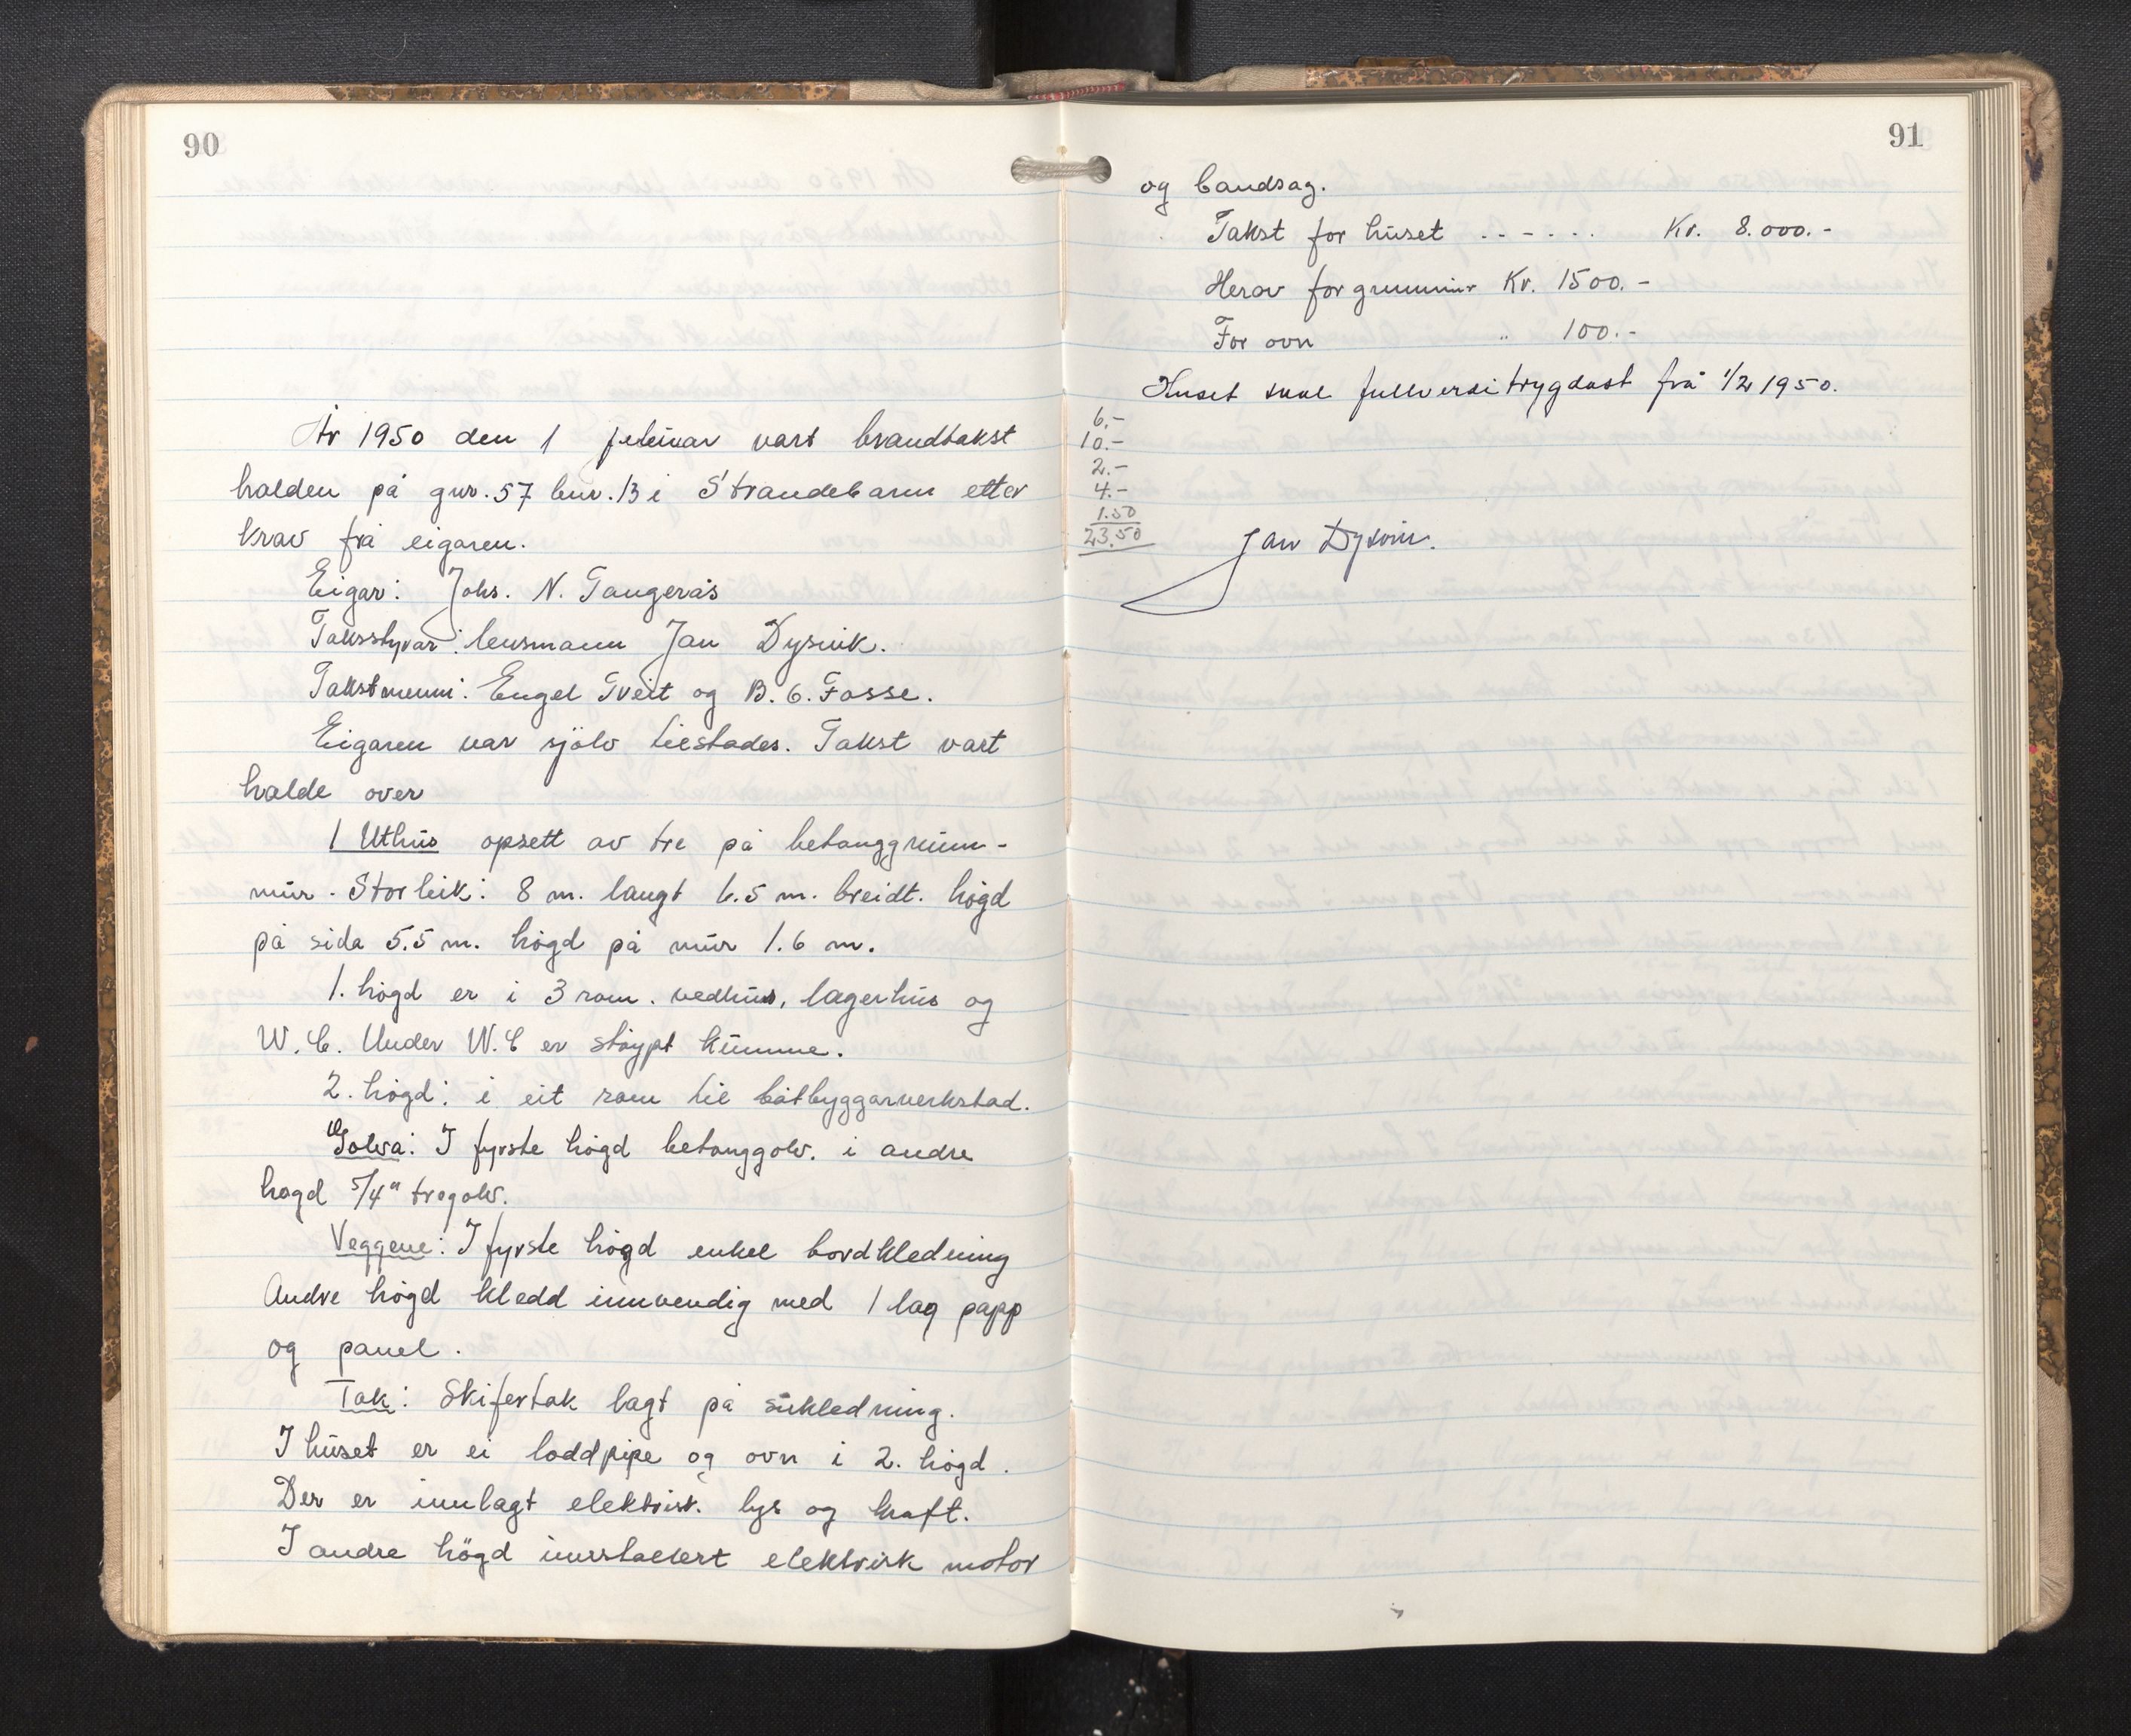 90
År 1950 den 1 februar vart brandtakst
halden på gnr. 57 bnr. 13 i Strandebarm etter
krav frå eigaren.
Eigar: Johs. N. Tangerås
Takststyrar: lensmann Jan Dysvik.
Takstmenn: Engel Tveit og B. G. Fosse.
Eigaren var sjölv tilstades. Takst vart
halde over
1 Uthus opsett av tre på betonggrunn-
mur. Storleik: 8 m. langt 6.5 m. breidt. högd
på sida 5.5 m. högd på mur 1.6 m.
1. högd er i 3 rom. vedhus, lagerhus og
W.C. Under W.C er stöypt kumme.
2. högd: i eit rom til båtbyggarverkstad.
Golva: I fyrste högd betonggolv. i andre
hogd 5/4" tregolv.
Veggene: I fyrste högd enkel bordkledning
Andre högd kledd innvendig med 1 lag papp
og panel.
Tak: Skifertak lagt på sukledning.
I huset er ei loddpipe og ovn i 2. högd.
Der er innlagt elektrisk. lys og kraft.
I andre högd innstallert elektrisk motor
91
og bandsag.
Takst for huset - - - - - - Kr. 8.000.-
Herav for grunnmur Kr. 1500.-
For ovn " 100.-
Huset skal fullverditrygdast frå 1/2 1950.
6,-
10.-
2.-
4.-
1.50
23.50
Jan Dysvik.